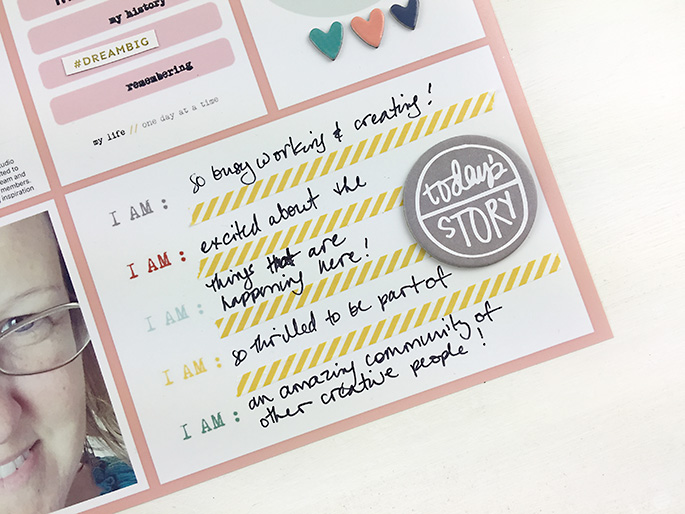 my history
#DREAMBIG
remembering
my life // one day at a time
so busy working & creating!
I AM :
excited about the
I AM :
things that are
happening here!
I AM :
so thrilled to be part of
I AM :
an amazing community of
other creative people!
I AM :
today's
STORY
studio
ted to
eam and
members.
g inspiration